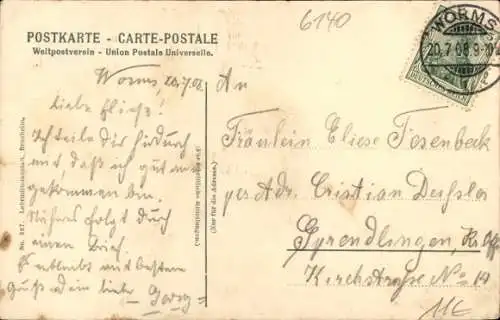 6140
POSTKARTE - CARTE-POSTALE
Weltpostverein - Union Postale Universelle.
WORMS
20.7.08.9-10
DEUTSCHES REICH
Worms, 20.7.08
Liebe Eliese!
Ich teile Dir hierdurch
mit daß ich gut an
gekommen bin.
Näheres folgt durch
einen Brief.
Es verbleibt mit bestem
Gruß Dein lieber Georg
No. 247.
(Nur für die Adresse.)
An
Fräulein Eliese Fosenbeck
per Adr. Cristian Deißler
Sprendlingen, Kr. Off
Kirchstraße No 19
11€